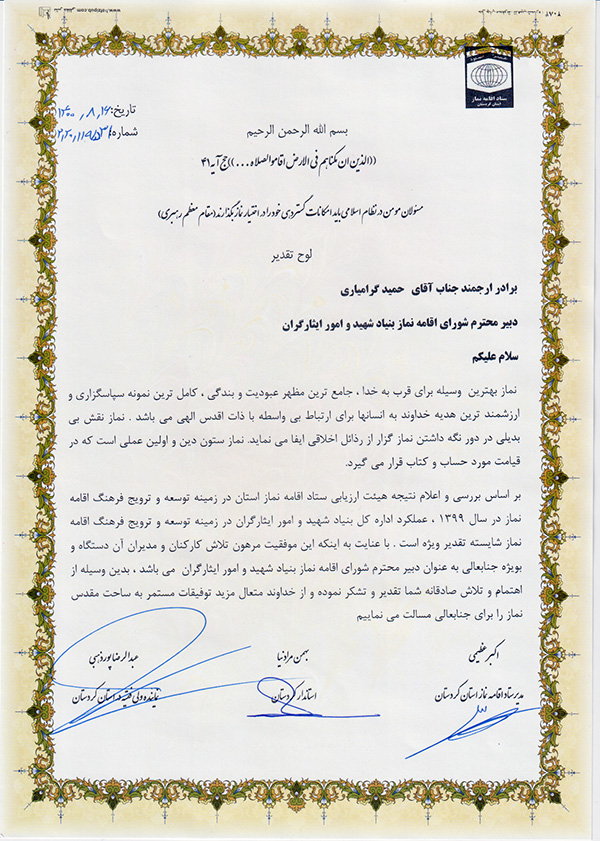 ستاد اقامه نماز
استان کردستان
تاریخ: ۱۴۰۰٫۸٫۱۶
شماره:
بسم الله الرحمن الرحیم
((الذین ان مکناهم فی الارض اقاموالصلاه ...)) حج آیه ۴۱
مسئولان مومن در نظام اسلامی باید امکانات گسترده ی خود را در اختیار نماز بگذارند (مقام معظم رهبری)
لوح تقدیر
برادر ارجمند جناب آقای حمید گرامیاری
دبیر محترم شورای اقامه نماز بنیاد شهید و امور ایثارگران
سلام علیکم
نماز بهترین وسیله برای قرب به خدا ، جامع ترین مظهر عبودیت و بندگی ، کامل ترین نمونه سپاسگزاری و
ارزشمند ترین هدیه خداوند به انسانها برای ارتباط بی واسطه با ذات اقدس الهی می باشد . نماز نقش بی
بدیلی در دور نگه داشتن نماز گزار از رذائل اخلاقی ایفا می نماید. نماز ستون دین و اولین عملی است که در
قیامت مورد حساب و کتاب قرار می گیرد.
بر اساس بررسی و اعلام نتیجه هیئت ارزیابی ستاد اقامه نماز استان در زمینه توسعه و ترویج فرهنگ اقامه
نماز در سال ۱۳۹۹ ، عملکرد اداره کل بنیاد شهید و امور ایثارگران در زمینه توسعه و ترویج فرهنگ اقامه
نماز شایسته تقدیر ویژه است . با عنایت به اینکه این موفقیت مرهون تلاش کارکنان و مدیران آن دستگاه و
بویژه جنابعالی به عنوان دبیر محترم شورای اقامه نماز بنیاد شهید و امور ایثارگران می باشد ، بدین وسیله از
اهتمام و تلاش صادقانه شما تقدیر و تشکر نموده و از خداوند متعال مزید توفیقات مستمر به ساحت مقدس
نماز را برای جنابعالی مسالت می نماییم
اکبر عظیمی
مدیر ستاد اقامه نماز استان کردستان
بهمن مرادنیا
استاندار کردستان
عبدالرضا پورذهبی
نماینده ولی فقیه در استان کردستان